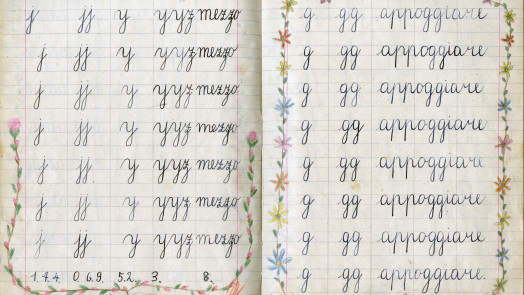 j jj y yyz mezzo
j jj y yyz mezzo
j jj y yyz mezzo
j jj y yyz mezzo
j jj y yyz mezzo
j jj y yyz mezzo
j jj y yyz mezzo
1.4.4. 0.6.9. 5.2. 3. 8.
g gg appoggiare
g gg appoggiare
g gg appoggiare
g gg appoggiare
g gg appoggiare
g gg appoggiare
g gg appoggiare
g gg appoggiare.